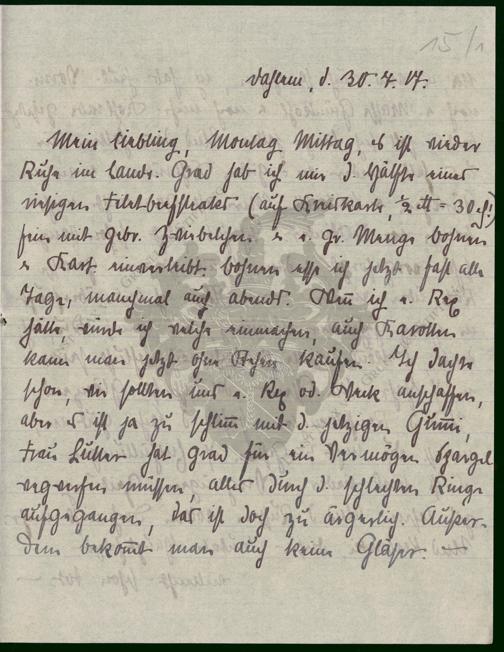 15/1
Dahlem, d. 30.7.17.
Mein Liebling, Montag Mittag, es ist wieder
Ruhe im Lande. Grad hab ich mir d. Hälfte eines
riesigen Filetbeefsteaks (auf Kreiskarte, ½ ℔ = 30 ₰!)
fein mit gebr. Zwiebelchen u. e. gr. Menge Bohnen
u. Kart. einverleibt. Bohnen esse ich jetzt fast alle
Tage, manchmal auch abends. Wenn ich e. Rex
hätte, würde ich welche einmachen, auch Karotten
kann man jetzt ohne kaufen. Ich dachte
schon, wir sollten uns e. Rex od. Weck anschaffen,
aber es ist ja zu schlimm mit d. jetzigen Gummi,
Frau Lütter hat grad für ein Vermögen Spargel
wegwerfen müssen, alles durch d. schlechten Ringe
aufgegangen, das ist doch zu ärgerlich. Außer-
dem bekommt man auch keine Gläser. —